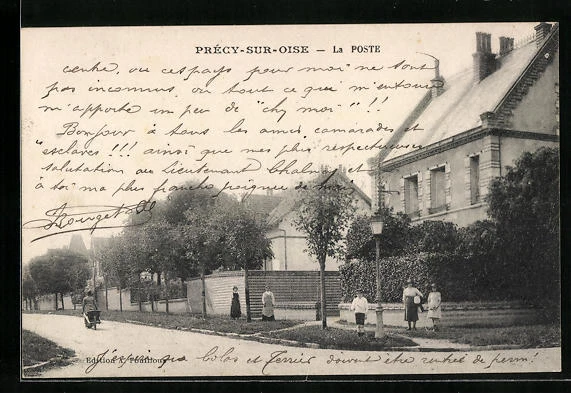 PRÉCY-SUR-OISE — LA POSTE
centre, où ces pays pour moi ne sont
pas inconnus, où tout ce qui m'entoure
m'apporte un peu de "chez moi" !!
Bonjour à tous les amis, camarades et
"esclaves" !!! ainsi que mes plus respectueuses
salutations au Lieutenant et
à toi ma plus franche poignée de main
Edition A.
J'espère que Bolos et Terrier doivent être rentrés de perm !